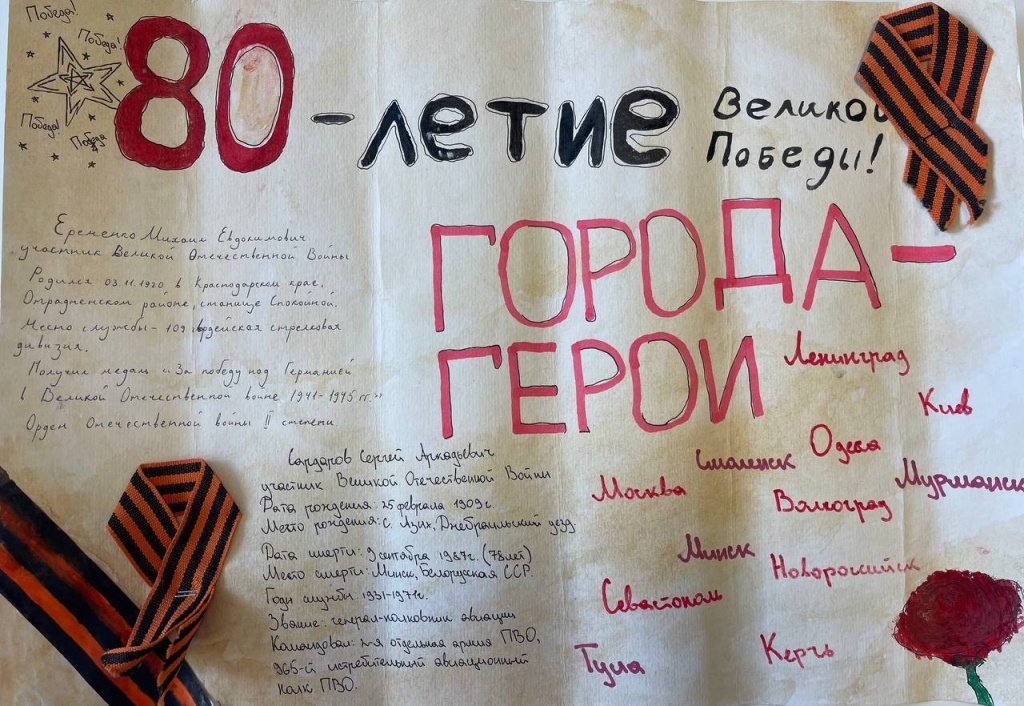 Победа!
Победа!
Победа!
Победа
80-летие
Великой
Победы!
ГОРОДА-
ГЕРОИ
Еременко Михаил Евдокимович
участник Великой Отечественной Войны
Родился 03.11.1920, в Краснодарском крае,
Отрадненском районе, станице Спокойной.
Место службы- 109 стрелковая
дивизия.
Получил медали "За победу под Германией
в Великой Отечественной войне 1941-1945 гг."
Орден Отечественной войны II степени
Сардаров Сергей Аркадьевич
участник Великой Отечественной Войны
Дата рождения: 25 февраля 1909г.
Место рождения: с. Азих, Джебраильский уезд.
Дата смерти: 9 сентября 1987г. (78 лет)
Место смерти: Минск, Белорусская ССР.
Годы службы: 1931-1971г.
Звание: генерал-полковник авиации
Командовал: 2-я отдельная армия ПВО,
965-й истребительный авиационный
полк ПВО.
Ленинград
Киев
Одесса
Смоленск
Мурманск
Москва
Волгоград
Минск
Новороссийск
Севастополь
Тула
Керчь